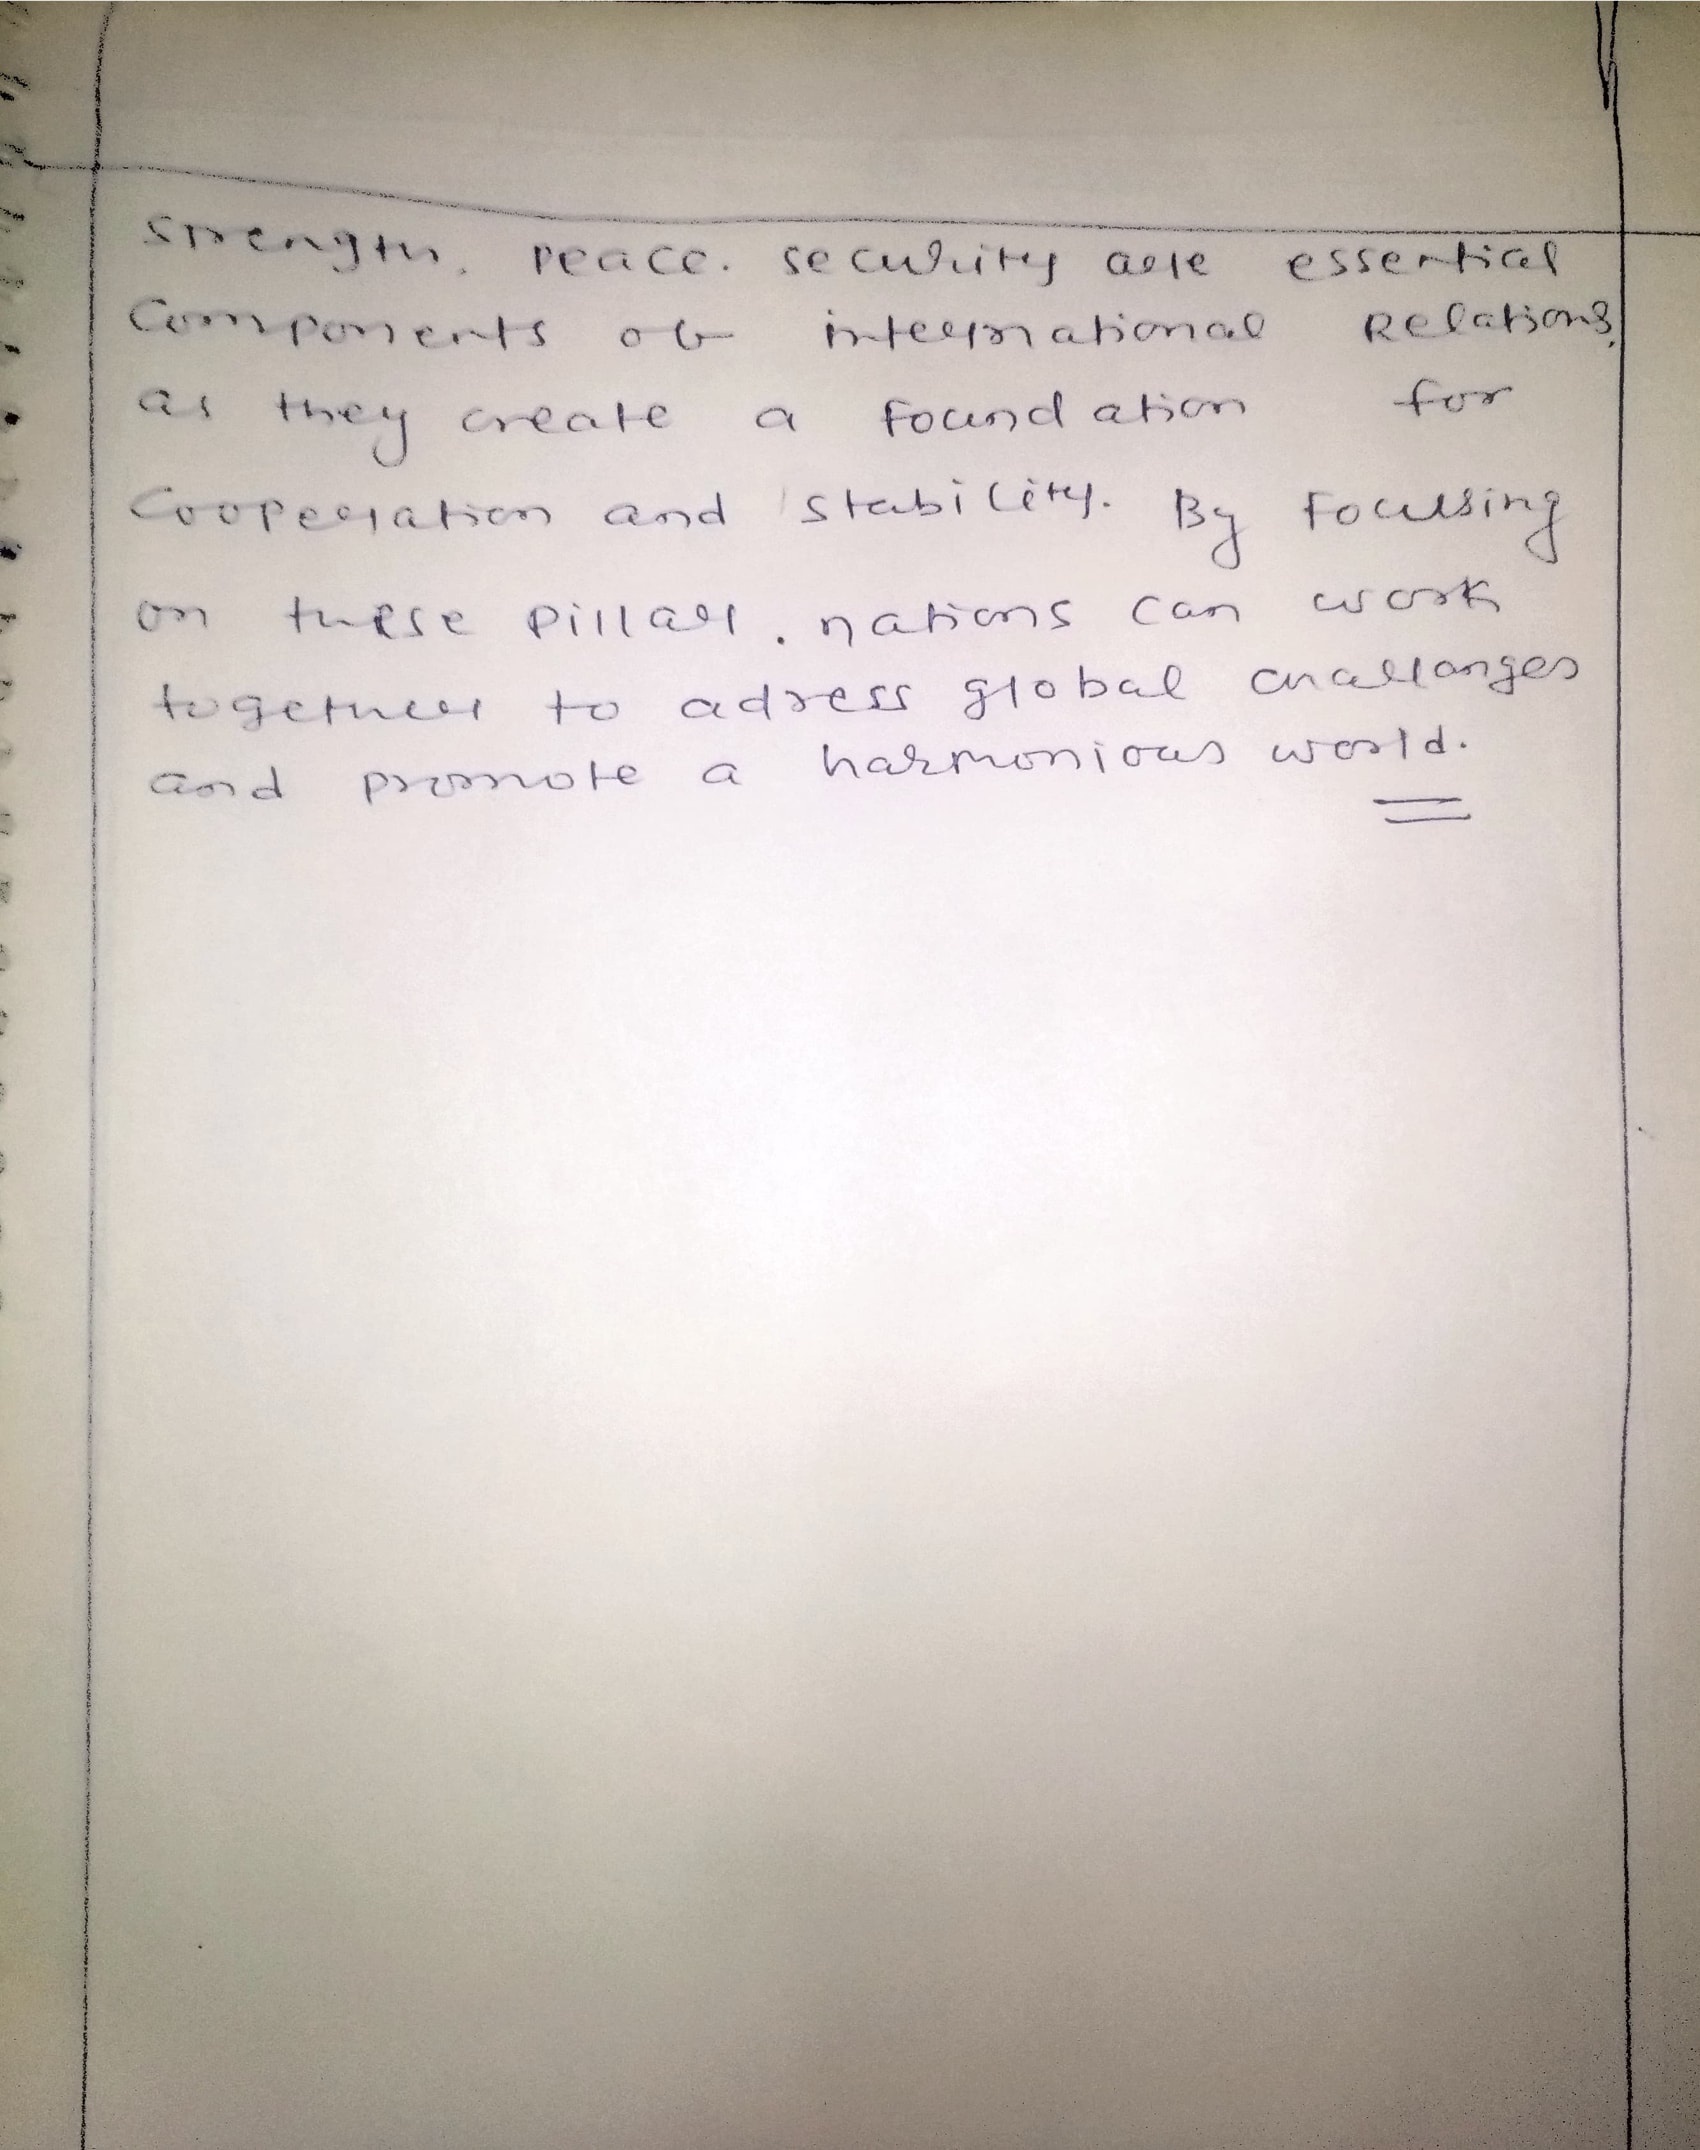 Strength, peace. security are essential
Components of international Relations,
as they create a foundation for
Cooperation and stability. By focussing
on these pillar, nations can work
together to adress global challanges
and promote a harmonious world.